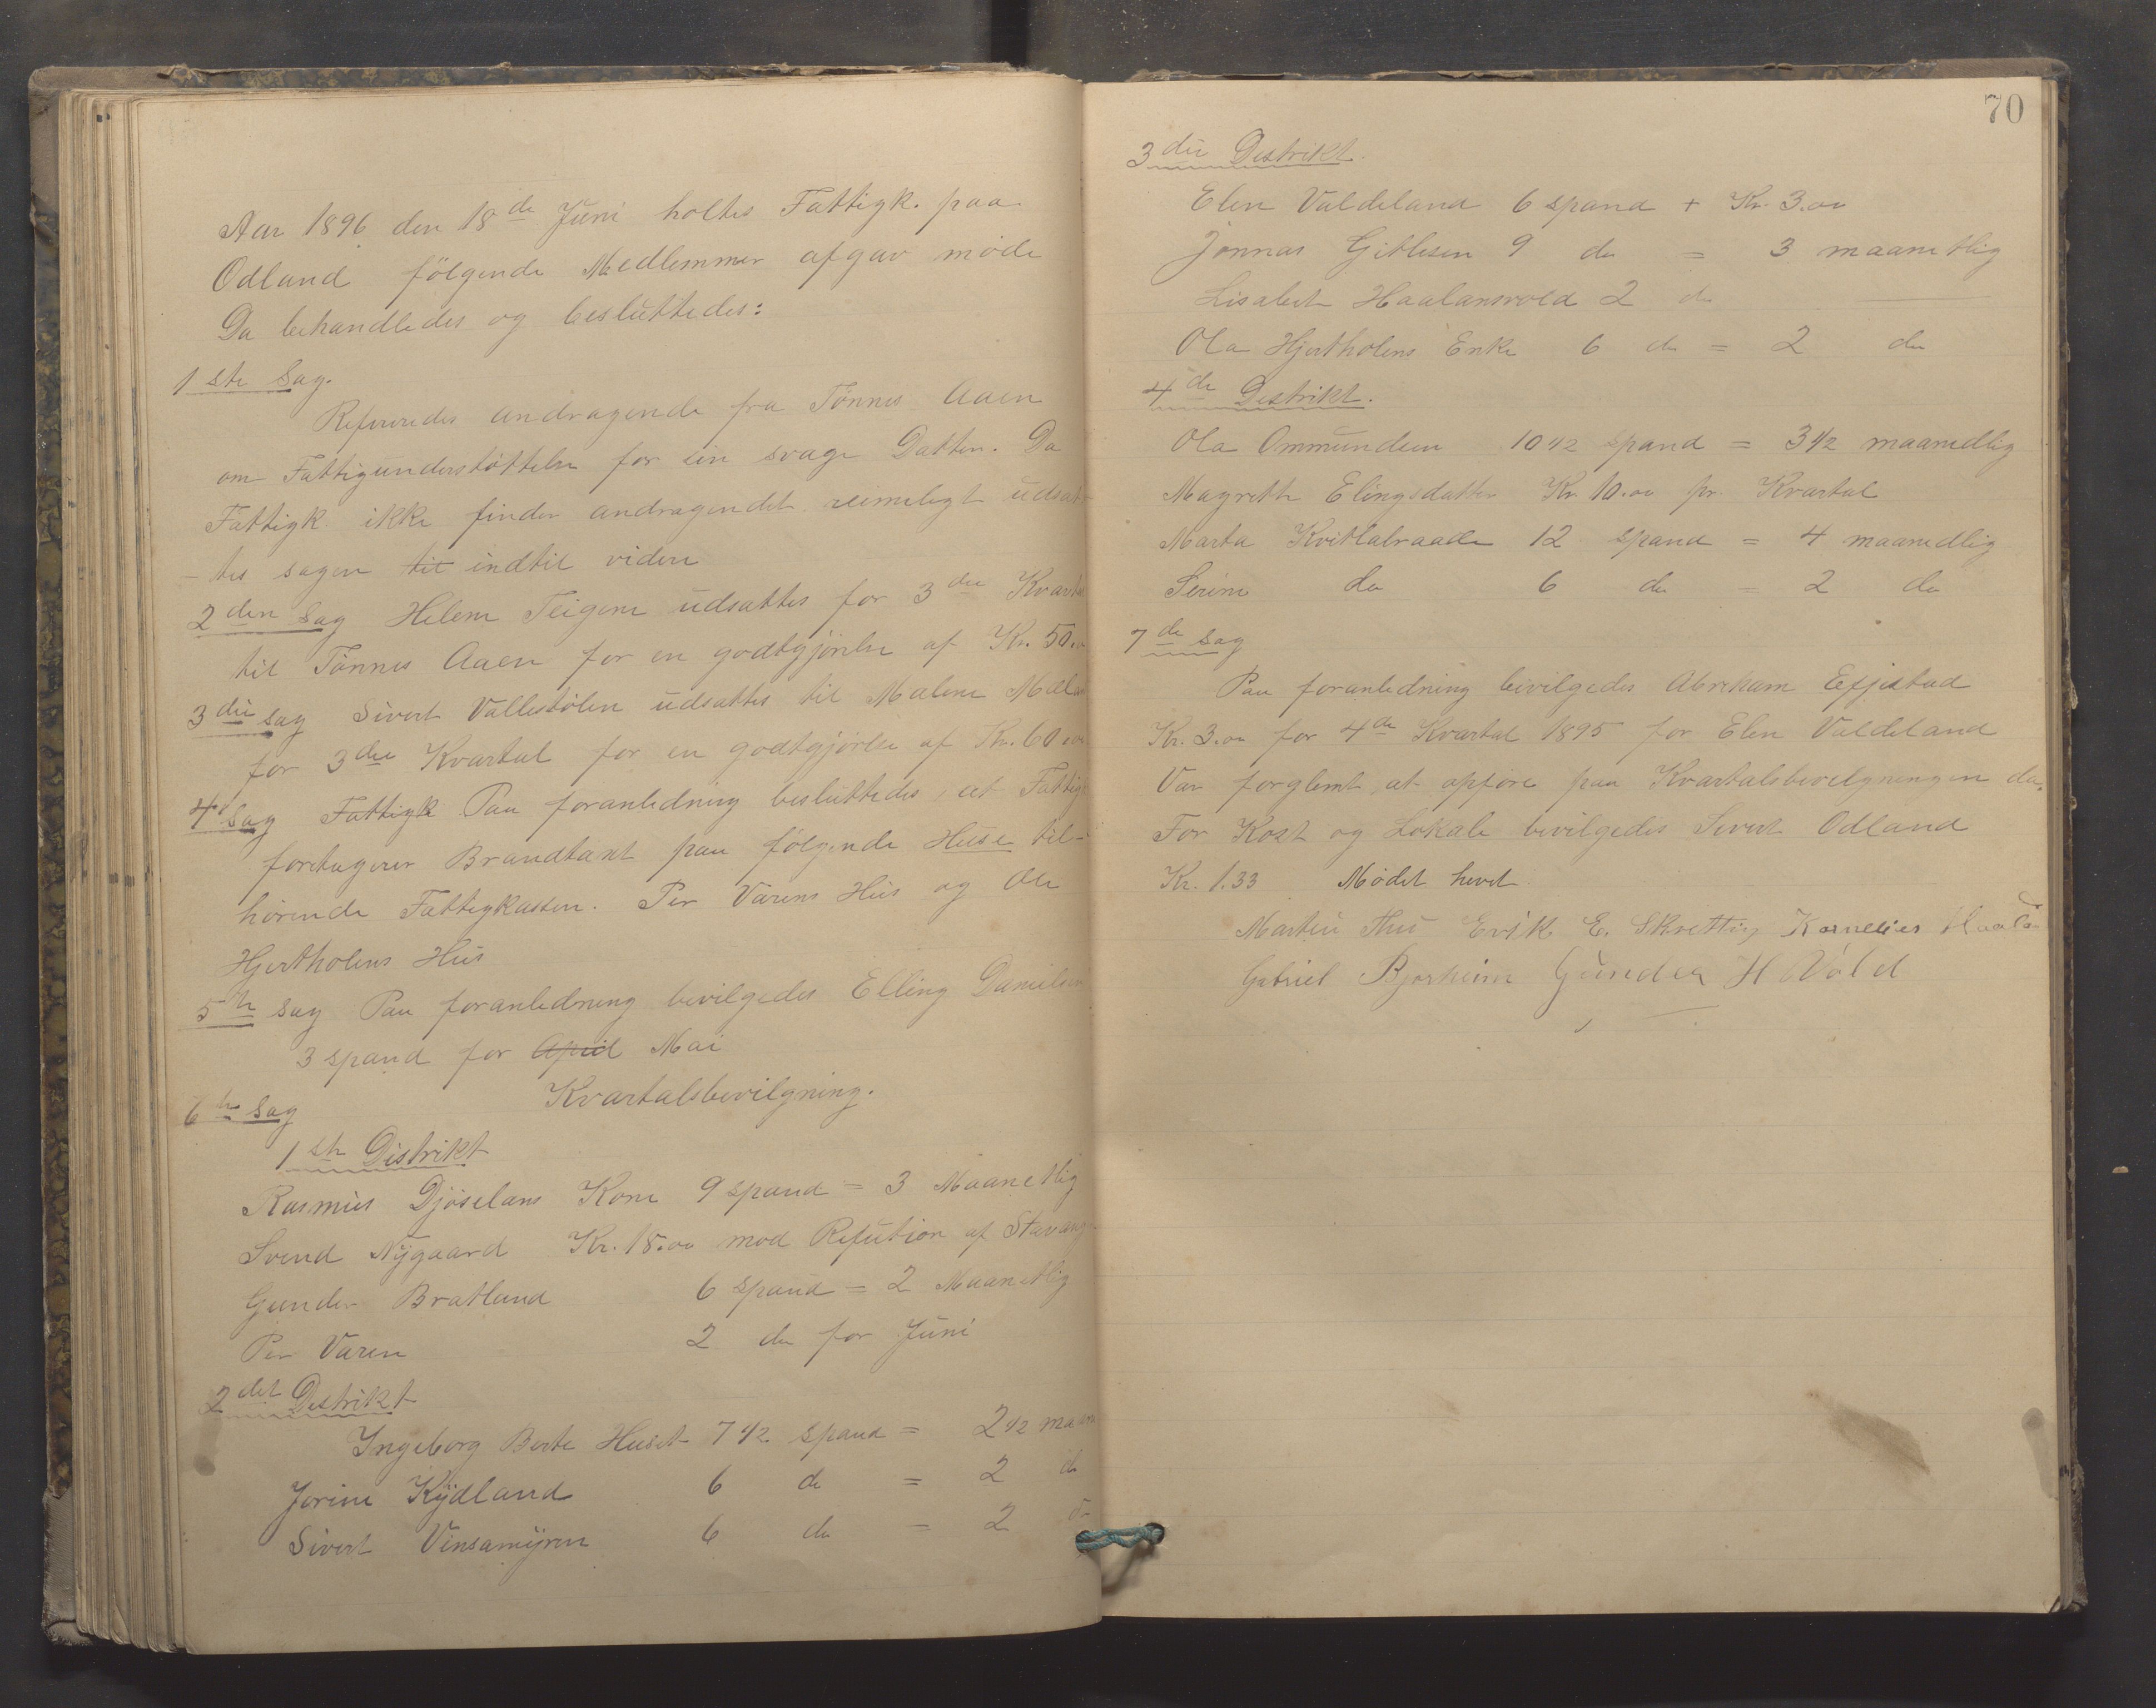 Aar 1896 den 18de Juni holtes Fattigk. paa
Odland følgende Medlemmer afgav møde
Da behandledes og besluttedes:
1ste Sag.
Refereredes andragende fra Tønnes Aaen
om Fattigunderstøttelse for sin svage Datter. Da
Fattigk. ikke finder andragendet reimeligt udsat
-tes sagen til indtil videre
2den Sag Helene Teigene udsattes for 3die Kvartal
til Tønnes Aaen for en godtgjørelse af Kr. 50.00
3die Sag Sivert Vallestølen udsattes til Malene
for 3die Kvartal for en godtgjørelse af Kr. 60.00
4de Sag Fattigk Paa foranledning besluttedes, at Fattigk
foretagerer Brandtaxt paa følgende Huse til-
hørende Fattigkassen. Per Varens Hus og Ole
Hjertholens Hus
5te Sag Paa foranledning bevilgedes Elling Danielsen
3 spand for April Mai
Kvartalsbevilgning.
6te Sag
1ste Distrikt
Rasmus Djøselans Kone 9 spand = 3 Maanetlig
Svend Nygaard Kr. 18.00 mod Refution af Stavanger
Gunder Bratland 6 spand = 2 Maanetlig
Per Varen 2 do for Juni
2det Destrikt
Ingeborg Berte Huset 7 1/2 spand = 2 1/2 maan
Jorine Kydland 6 do = 2 do
Sivert Vinsamyren 6 do = 2 do
70
3die Destrikt.
Elen Valdeland 6 spand + Kr. 3.00
Jonnas Gitlesen 9 do = 3 maanetlig
Lisabet Haalansvold 2 do
Ola Hjertholens Enke 6 do = 2 do
4de Destrikt.
Ola Ommundsen 10 1/2 spand = 3 1/2 maanedlig
Magrethe Elingsdatter Kr 10.00 pr. Kvartal
Marta Kvitlabraade 12 spand = 4 maanedlig
Serine do 6 do = 2 do
7de Sag
Paa foranledning bevilgedes Abreham Efjestad
Kr. 3.00 for 4de Kvartal 1895 for Elen Valdeland
Var forglemt, at opføre paa Kvartalsbevelgningen da.
For Kost og Lokale bevilgedes Sivert Odland
Kr. 1.33 Mødet hevet.
Marten Thu Erik E. Skretting Kornelius Haaland
Gabriel Bjorheim Gunder H Vold